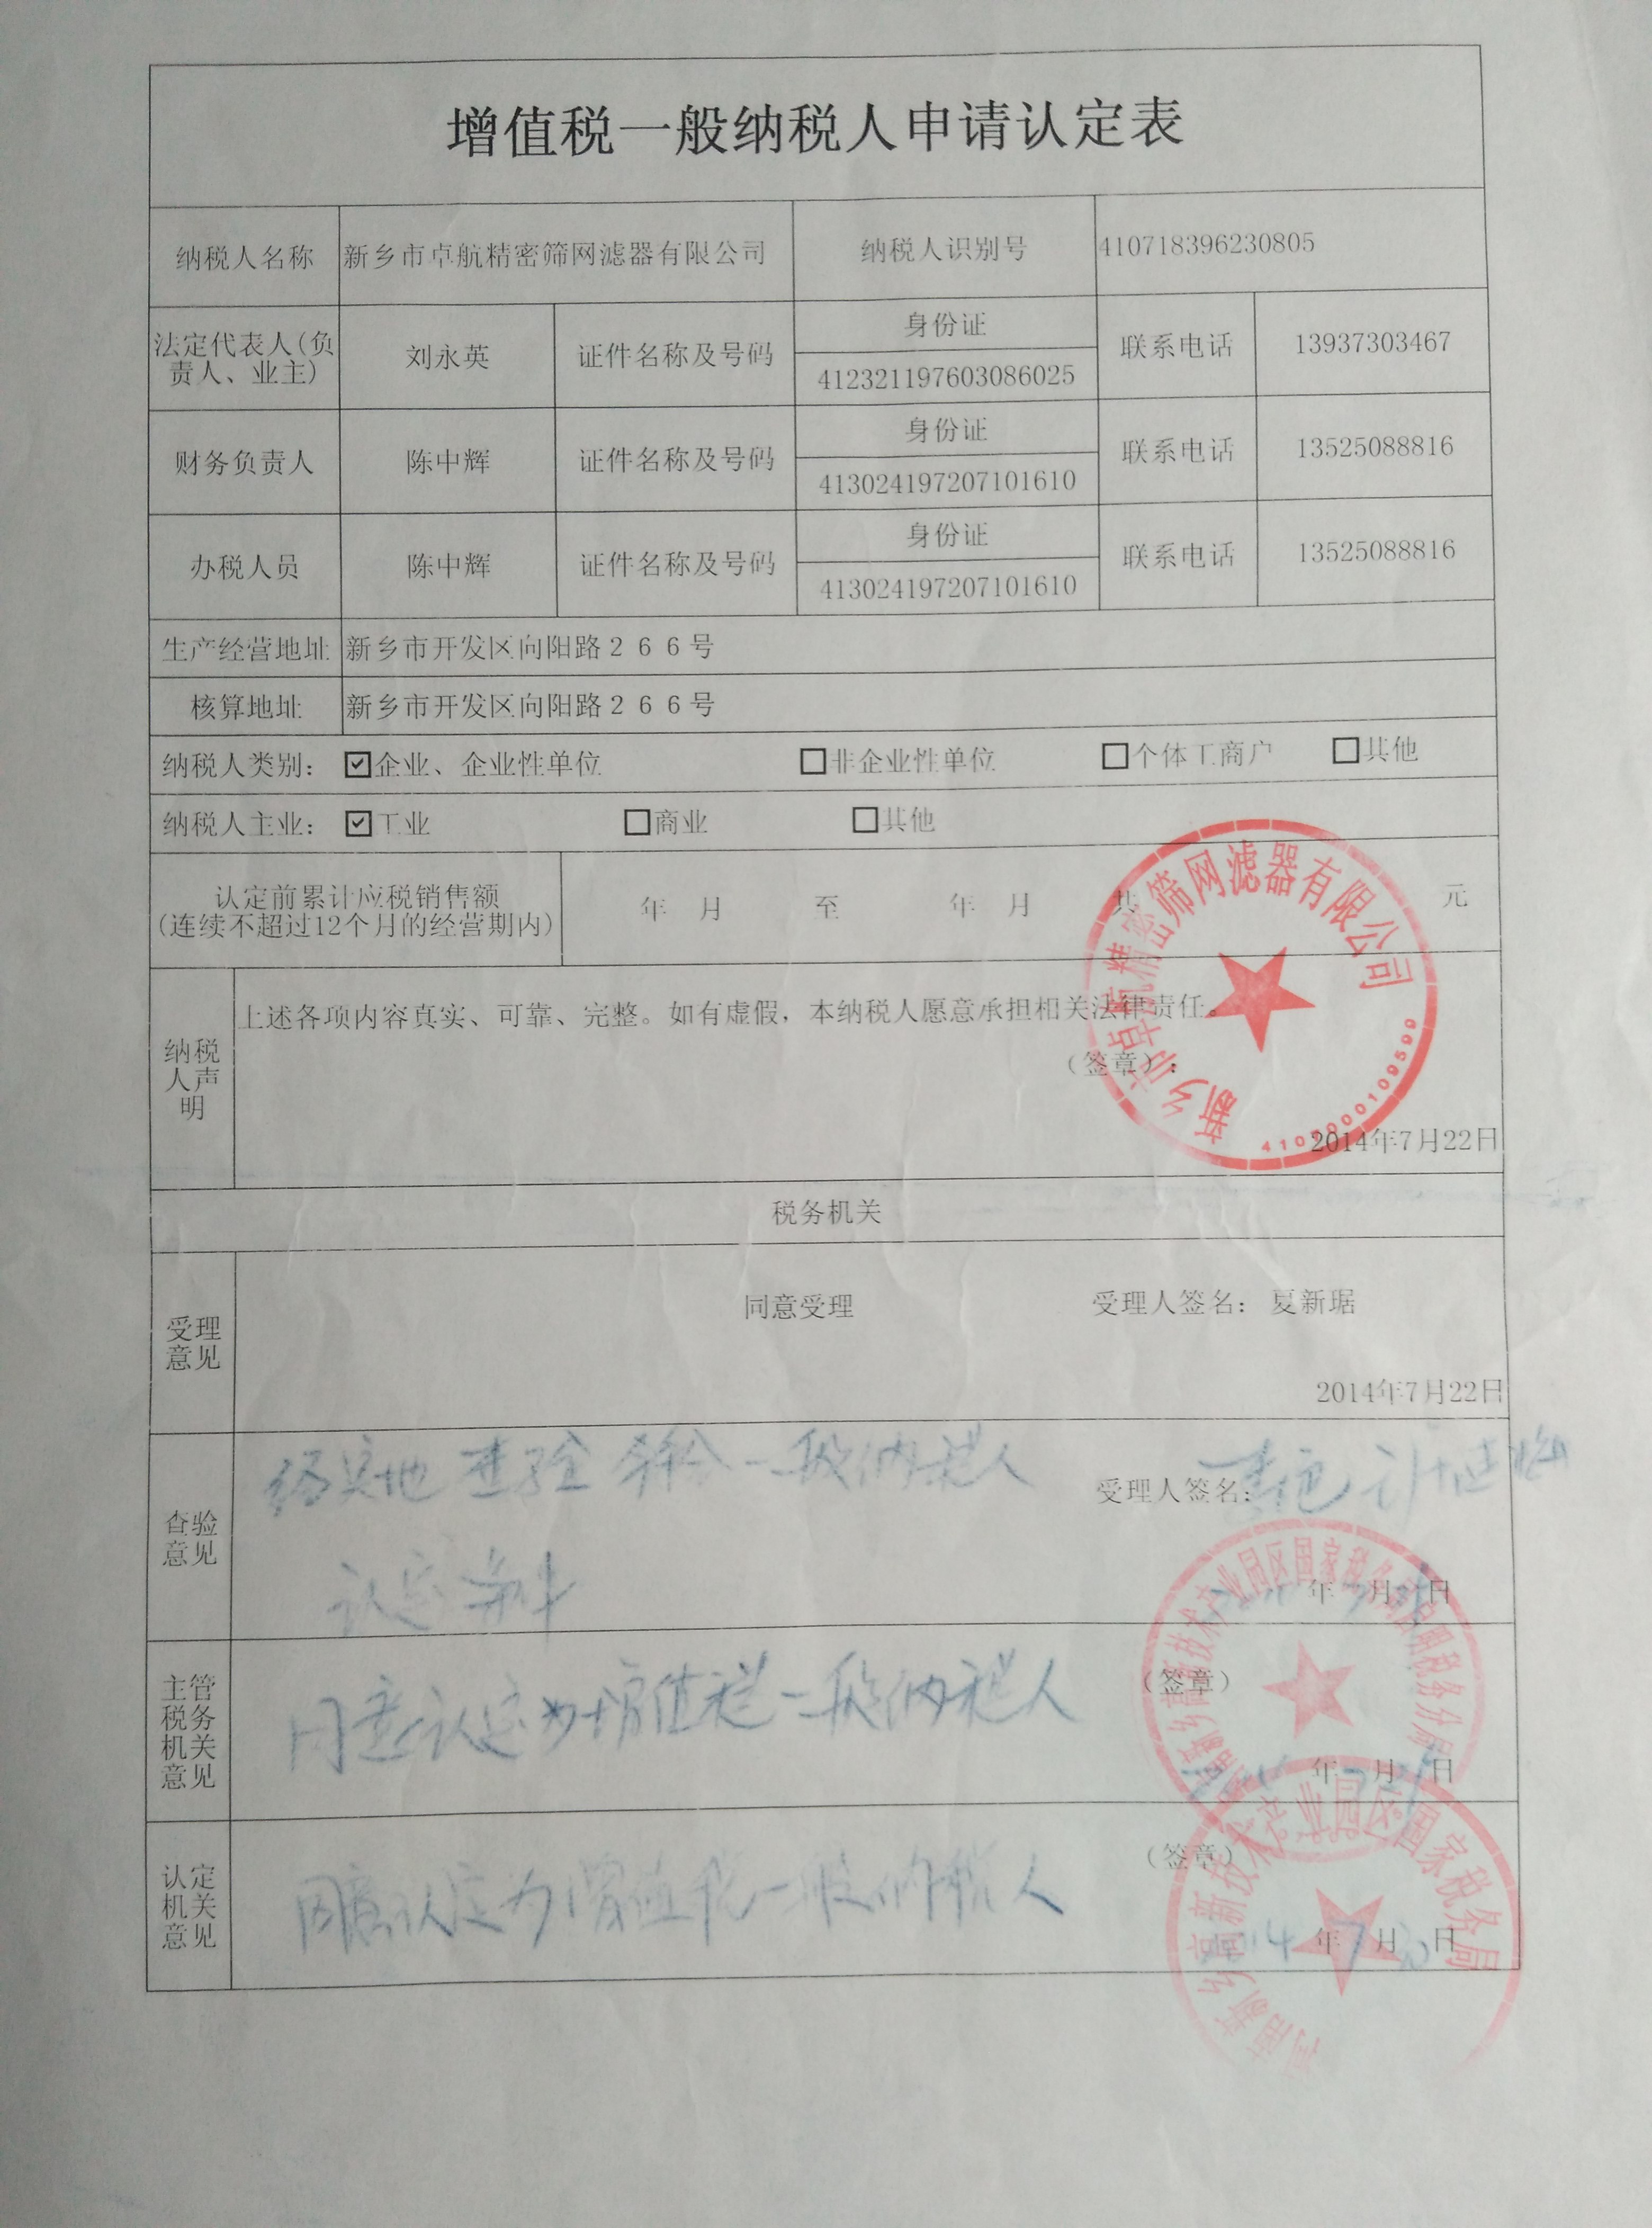 增值税一般纳税人申请认定表
纳税人名称 新乡市卓航精密筛网滤器有限公司 纳税人识别号 410718396230805
法定代表人(负责人、业主) 刘永英 证件名称及号码 身份证 412321197603086025 联系电话 13937303467
财务负责人 陈中辉 证件名称及号码 身份证 413024197207101610 联系电话 13525088816
办税人员 陈中辉 证件名称及号码 身份证 413024197207101610 联系电话 13525088816
生产经营地址 新乡市开发区向阳路２６６号
核算地址 新乡市开发区向阳路２６６号
纳税人类别： ☑企业、企业性单位 □非企业性单位 □个体工商户 □其他
纳税人主业： ☑工业 □商业 □其他
认定前累计应税销售额
(连续不超过12个月的经营期内) 年 月 至 年 月 共 元
新乡市卓航精密筛网滤器有限公司
纳税人声明
上述各项内容真实、可靠、完整。如有虚假，本纳税人愿意承担相关法律责任。
（签章）：
2014年7月22日
税务机关
受理意见
同意受理 受理人签名：夏新琚
2014年7月22日
查验意见
经实地查验符合一般纳税人
受理人签名：
认定条件
年 月 日
主管税务机关意见
同意认定为增值税一般纳税人
（签章）
年 7月 日
认定机关意见
同意认定为增值税一般纳税人
（签章）
14年7月 日